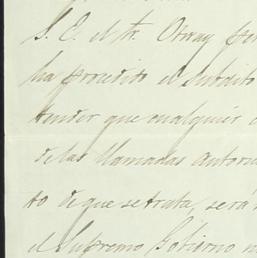 S. E. el Sr. Otway por
ha procedido el subdito
tender que cualquier
de las llamadas autori
to de que se trata, será
el Supremo Gobierno n